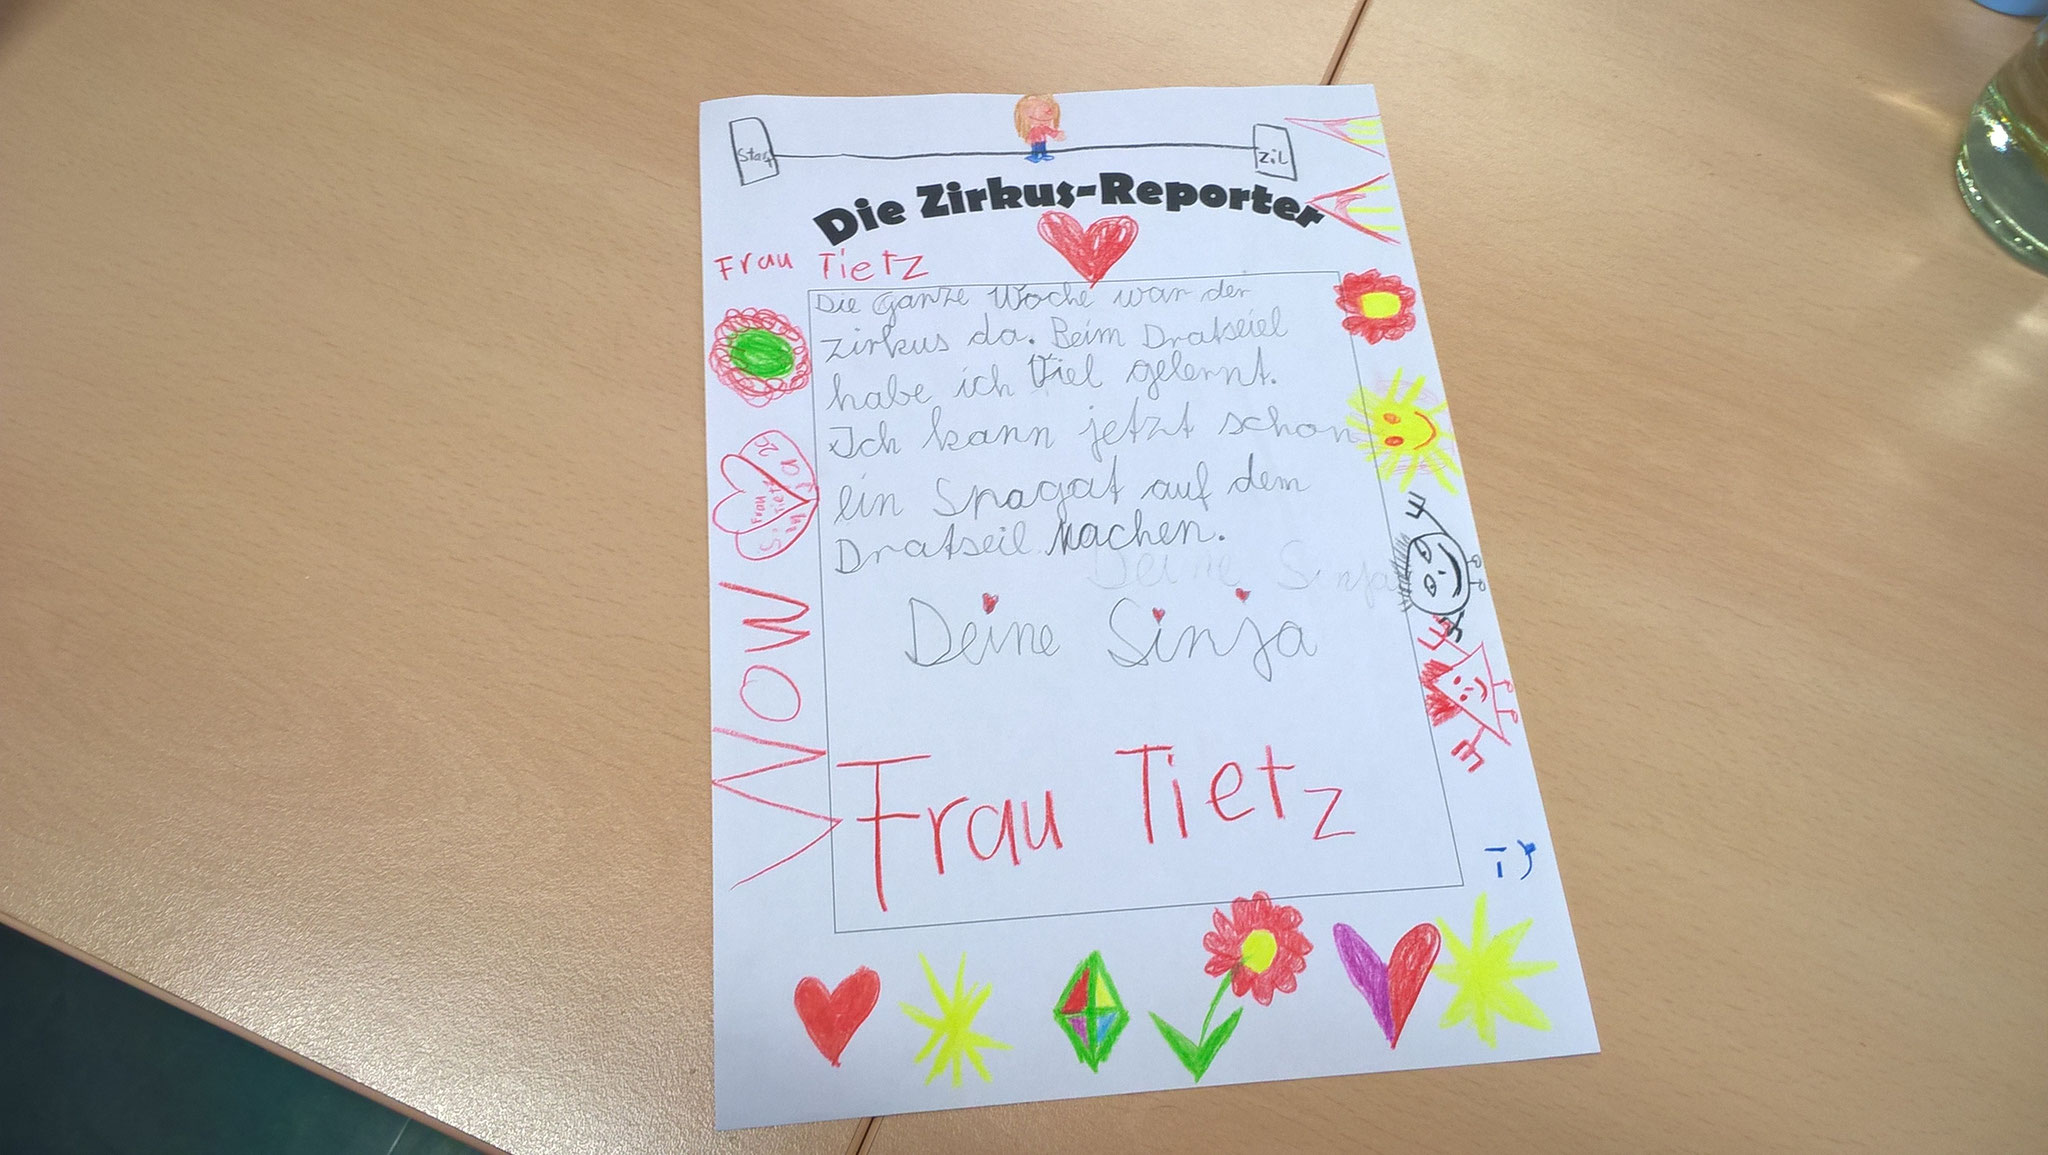 Start
Zil
Die Zirkus-Reporter
Frau Tietz
Die ganze Woche war der
zirkus da. Beim Dratseiel
habe ich Viel gelernt.
Ich kann jetzt schon
ein Spagat auf dem
Dratseil Machen.
Deine Sinja
Deine Sinja
Frau Tietz
Frau
Tietz
Wow